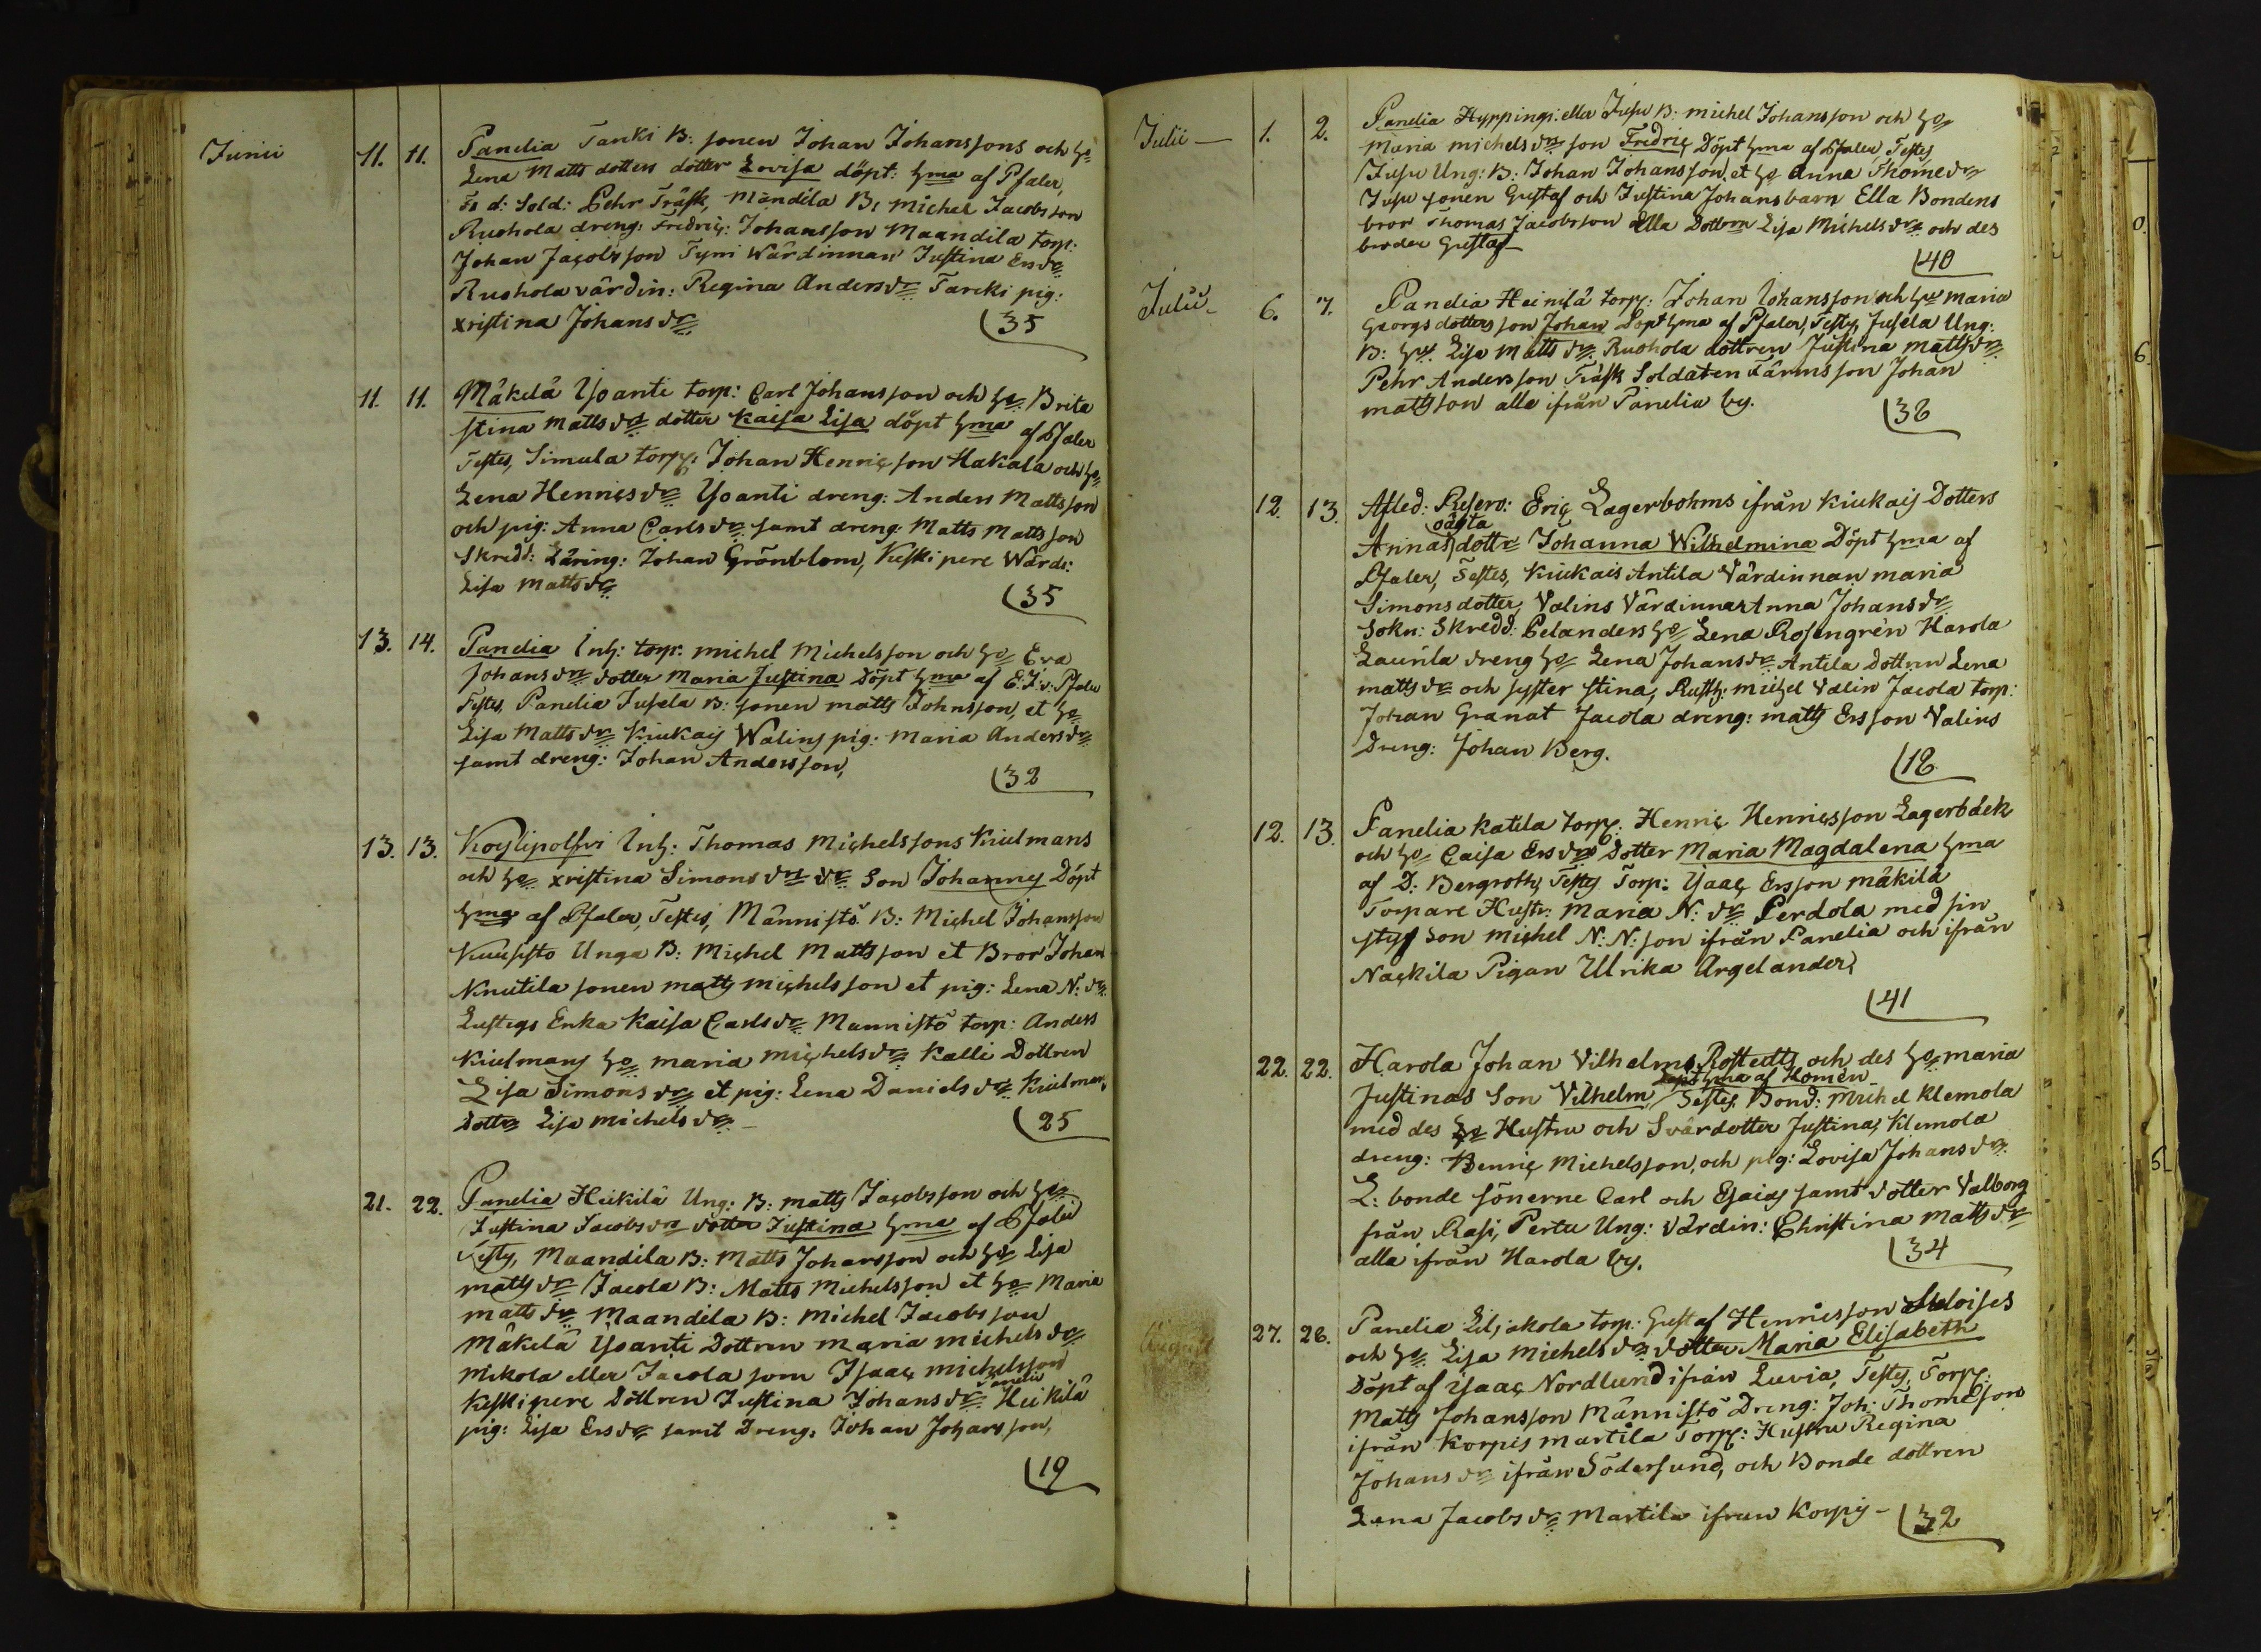 Junii 11. 11. Panelia Tanki B: sonen Johan Johanssons och ho
Lena Matts dotters dotter Lovisa döpt: hma af Pfaler,
Ts d: Sold: Pehr Träsk, Mandila B: Michel Jacobsson
Ruohola dreng: Fredric: Johansson Maandila torp:
Johan Jacobsson Tyni Wärdinnan Justina Ersdr
Ruohola värdin: Regina Andersdr Tarcki pig:
xristina Johansdr 35
11. 11. Mäkilä Yoanti torp: Carl Johansson och ho Brita
stina Mattsdr dotter Kaisa Lisa döpt hma af Pfaler
Testes, Simula torp: Johan Henricsson Hakala och ho
Lena Henricsdr Yoanti dreng: Anders Mattsson
och pig: Anna Carlsdr samt dreng: Matts Mattsson
Skredd: Läring: Johan Grönblom, Keskipere Wärd:
Lisa Mattsdr 35
13. 14. Panelia Inh: torp: michel Michelsson och ho Eva
Johansdr dotter Maria Justina Döpt hma af E. J. v: Pfaler
Testes, Panelia Jusela B: sonen matts Johnsson, et ho
Lisa Mattsdr Kiukais Walins pig: Maria Andersdr
samt dreng: Johan Andersson, 32
13. 13. Koylipolsvi Inh: Thomas Michelssons Kiulmans
och ho xristina Simonsdrs dr Son Johannes Döpt
hma af Pfaler, Testes, Männistö B: Michel Johansson
Kuusisto Unga B: Michel Mattsson et Bror Johan
Knutila sonen matts michelsson et pig: Lena N: dr
Lustigs Enka Kaisa Carlsdr Mannistö torp: Anders
Kiulmans ho maria michelsdr Kalli Dottren
Lisa Simonsdr et pig: Lena Danielsdr Kiulmans
Dottr Lisa michelsdr 25
21. 22. Panelia Heikilä Ung: B: matts Jacobsson och ho
Justina Jacobsdr dotter Justina hma af Pfaler
Testes, Maandila B: Matts Johansson och ho Lisa
mattsdr Jacola B: Matts Michelsson et ho Maria
mattsdr Maandila B: Michel Jacobsson
Mäkilä Yoanti Dottren maria michelsdr
Mikola eller Jacola son Isaac michelsson
Panelia
Keskipere Döttren Justina Johansdr Heikilä
pig: Lisa Ersdr samt Dreng: Johan Johansson,
19
Julii 1. 2. Panelia Hyppingi: ella Jusu B: michel Johansson och ho
Maria michelsdr son Fredric Döpt hma af Pfaler, Testes
Jusu Ung: B: Johan Johansson et ho Anna Thomedr
Jusu sonen Gustaf och Justina Johans barn Ella Bondens
bror Thomas Jacobsson Ella Dottren Lisa Michelsdr och des
broder Gustaf
40
Julii 6. 7. Panelia Heinisä torp: Johan Johansson och ho maria
Georgsdotters son Johan Döpt hma af Pfaler, Testes, Jusela Ung:
B: ho Lisa Mattsdr Ruohola dottren Justina mattsdr
Pehr Andersson Träsk Soldaten Färms son Johan
mattsson alla ifrån Panelia by. 38
12. 13. Afled: Reserv: Eric Lagerbohms ifrån Kiukais Dotters
oägta
Annas dottr Johanna Wilhelmina Döpt hma af
Pfaler, Testes, Kiukais Antila Värdinnan maria
Simonsdotter, Valins Värdinnan Anna Johansdr
Sokn: Skredd: Pelanders ho Lena Rosengrén Harola
Laurila dreng ho Lena Johansdr Antila dottren Lena
mattsdr och syster stina, Rusth: michel Valin Jacola torp:
Johan Granat Jacola dreng: matts Ersson Valins
Dreng: Johan Berg. 18
12. 13. Panelia Katila torp: Henric Henricsson Lagerbäck
och ho Caisa Ersdr Dotter Maria Magdalena hma
af D: Bergroth, Testes Torp: Ysaac Ersson mäkilä
Torpare Hustr: Maria N: dr Perdola med sin
styf son michel N: N: son ifrån Panelia och ifrån
Nackila Pigan Ulrika Argelander,
41
22. 22. Harola Johan Vilhelms Rostedts och des ho maria
döpt hma af Homén
Justinas Son Vilhelm, Testes, Bond: Michel Klemola
med des Hustru och Svärdotter Justina, Klemola
dreng: Henric Michelsson, och pig: Lovisa Johansdr
L: bonde sönerne Carl och Esaias samt dotter Valborg
från Rasi, Pertu Ung: Värdin: Christina Mattsdr
alla ifrån Harola by. 34
August 27. 28. Panelia Liljakola torp: Gustaf Henricsson
och ho Lisa Michelsdr dotter Maria Elisabeth
Döpt af Ysaac Nordlund ifrån Luvia, Testes, Torp:
Matts Johansson Männistö Dreng: Joh: Thomesson
ifrån Korpis Martila Torp: Hustru Regina
Johansdr ifrån Södersund, och Bonde dottren
Lena Jacobsdr Martila ifrån Korpis - 32